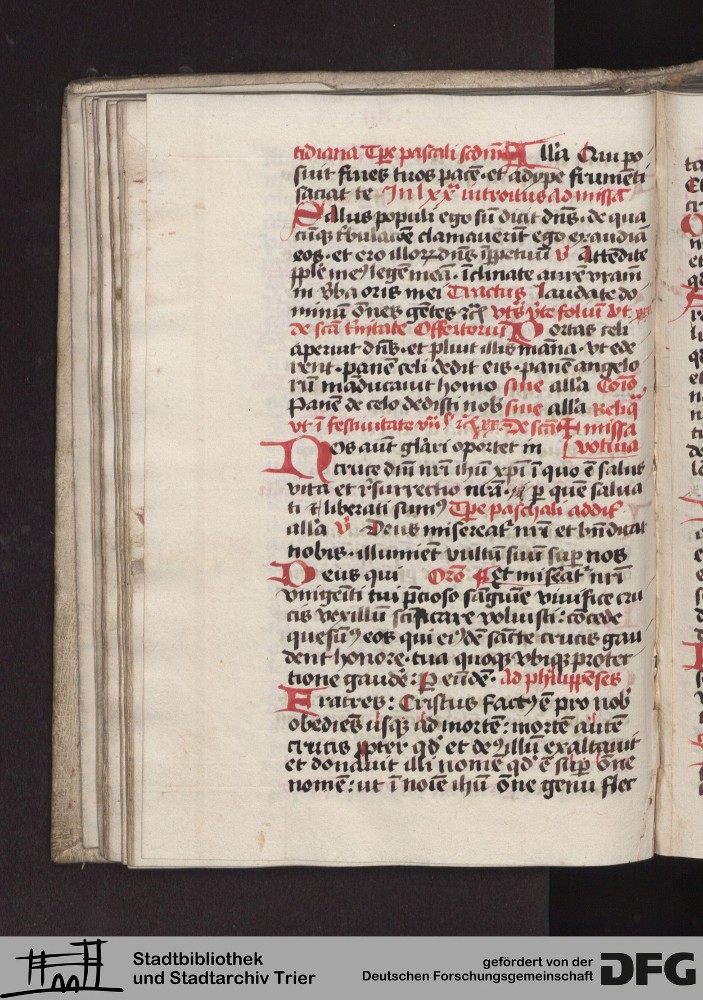 tidiana Tpe pascali scdm All'a Qui po
suit fines tuos pacē · et adype frumēti
saciat te In lxxª introitus ad missā
Salus populi ego sū dicit dñs · de qua
cūq tbulacōe clamauerit ego exaudiā
eos · et ero illoꝝ dñs īppetuū v Attēdite
pple meꝰ legē meā · īclinate aurē vr̄am
in v̄ba oris mei Tractus laudate do
minū oēs gētes
de scā t'nitate Offertoriū Portas celi
aperuit dñs · et pluit illis māna · vt ede
rent · panē celi dedit eis · panē angelo
rū māducauit homo sine all'a Cōīo
Panē de celo dedisti nob sine all'a Reliq
vt ī festiuitate De scā ✝ missa
Nos aut gl'ari oportet in votiua
cruce dnī nr̄i ihū xpī ī quo ē salus
vita et r̄surrectio nr̄a · p quē salua
ti ⁊ liberati sumꝰ Tpe paschali addit'
all'a v Deus misereat' nr̄i et bn̄dicat
nobis · illumiēt vultū suū sup nos
Deus qui Orō et mis'eat' nr̄i
vnigeīti tui p̄cioso sāgūie viuifice cru
cis vexillū sc̄ificare voluisti : cōcede
quesūꝰ eos qui eiꝰdē sācte crucis gau
dent honore · tua quoqꝫ vbiqꝫ protec
tione gaudē: P eūdē · Ad philippēses
Fratres : Cristus factꝰ ē pro nob'
obediēs usqꝫ ad mortē : mortē autē
crucis ꝓpter qd' et deꝰ illū exaltauit
et donauit illi nomē qd' ē sup ōne
nomē : ut ī noīe ihū ōne genu flec
Stadtbibliothek
und Stadtarchiv Trier
gefördert von der
Deutschen Forschungsgemeinschaft
DFG